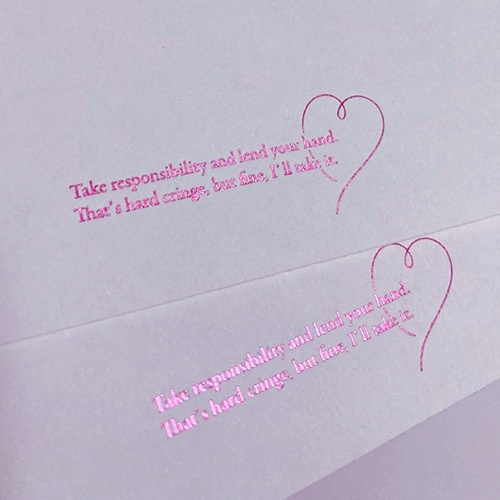 Take responsibility and lend your hand.
That's hard cringe, but fine, I'll take it.
Take responsibility and lend your hand.
That's hard cringe, but fine, I'll take it.